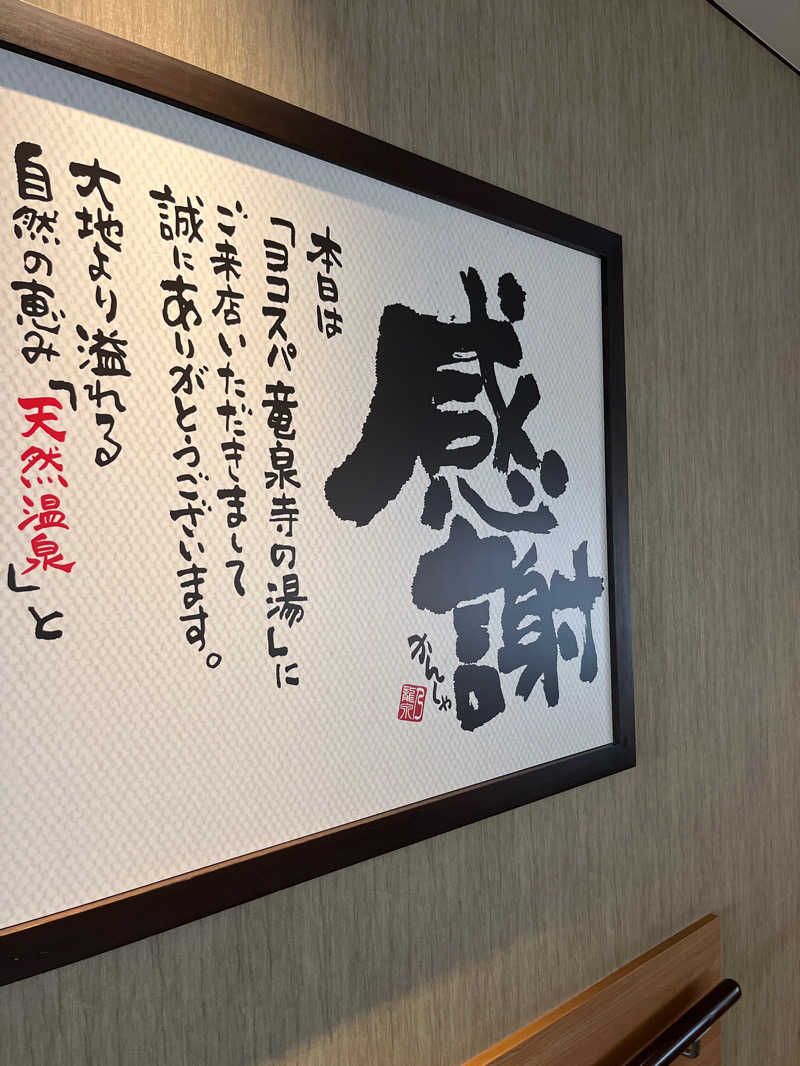 感謝
かんしゃ
本日は
「ヨコスパ竜泉寺の湯」に
ご来店いただきまして
誠にありがとうございます。
大地より溢れる
自然の恵み「天然温泉」と